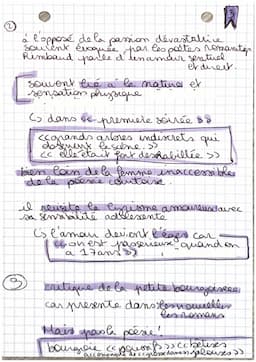 ②
à l'opposé de la passion dévastatrice
souvent évoquée par les poètes romantiques
Rimbaud parle d'un amour sensuel
et direct.
souvent lié à la nature et
sensation physique
↳ dans « première soirée »
« grands arbres indiscrets qui
la scène. »
« elle était fort déshabillée »
bien loin de la femme inaccessible
de la poésie courtoise.
il revisite le lyrisme amoureux avec
sa sensualité adolescente
↳ l'amour devient léger car
« on n'est pas sérieux quand on
a 17 ans »
③
critique de la petite bourgeoisie
car présente dans les nouvelles
les romans
Mais pas la poésie !
bourgeois « poussifs » « bêtises
jalouses »